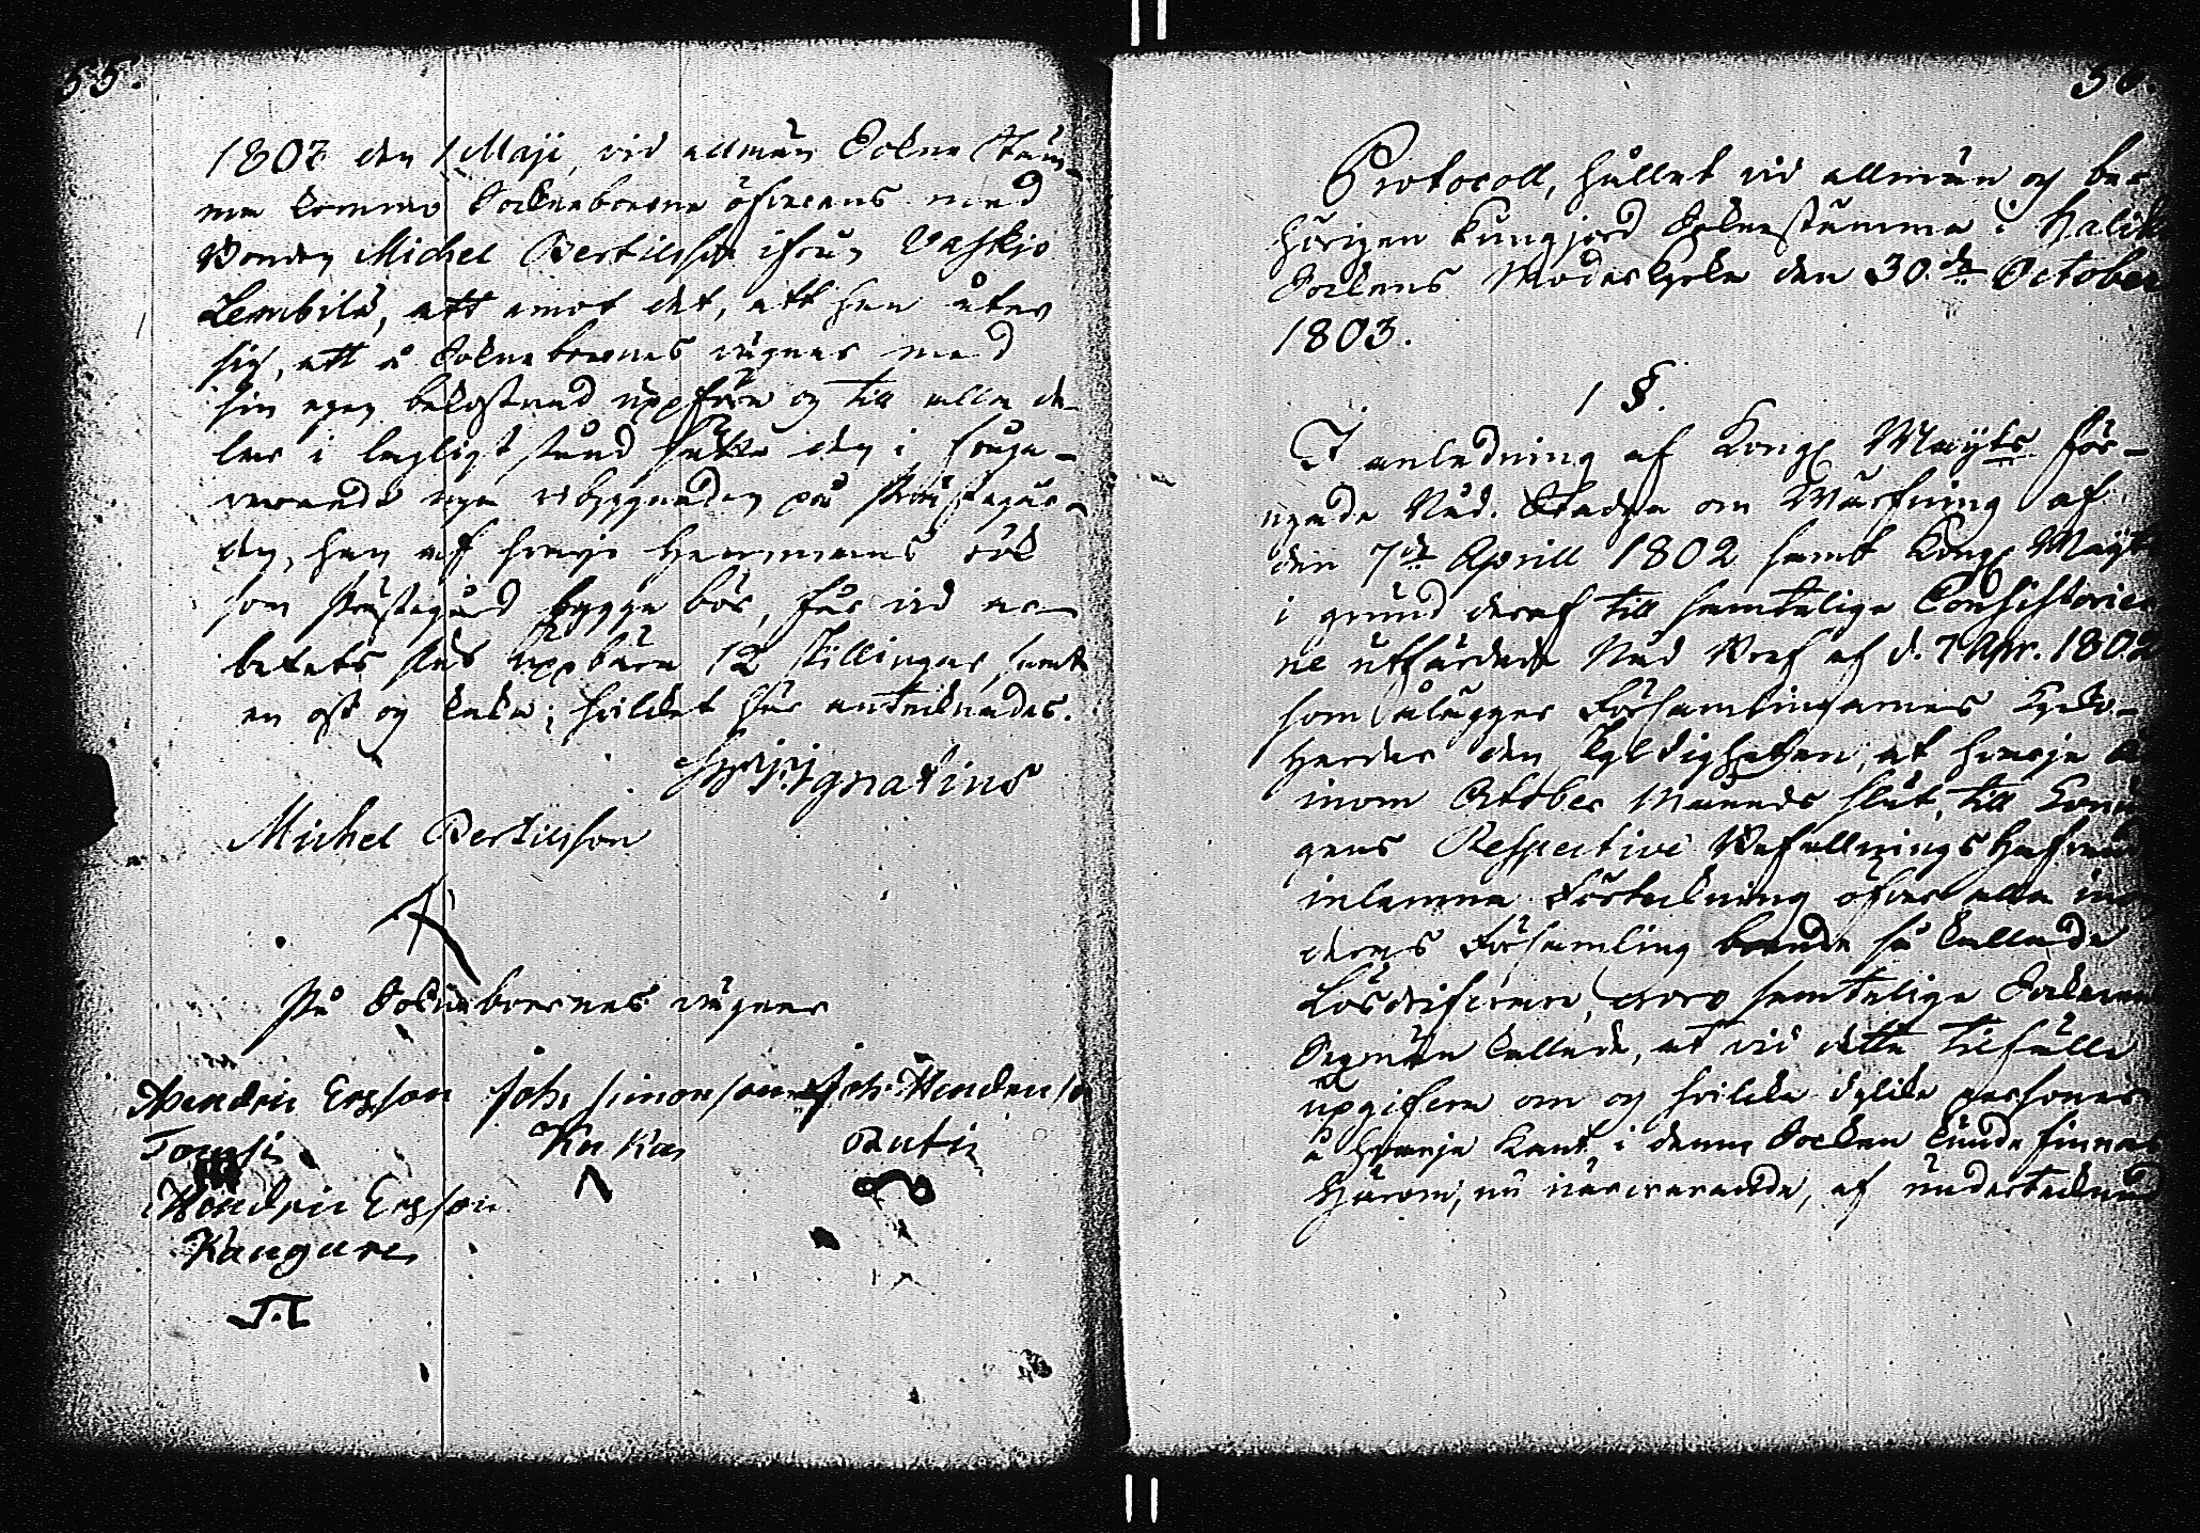 55.
1807 den 1 Maji, vid allmän Sokne stäm-
ma kommo Sokneboerne öfverens med
Bonden Michel Bertilsson ifrån Vaskio
Lembilä, att emot det, att han åtog
sig, att å Sokneboernes vägnar med
sin egen bekostnad uppföra og till alla de-
lar i lagligt stånd sätta den i
nya byggnaden på Prästegår-
den, han af hvarje Hemmans rök
som Prästegård bygga bör, får vid ar-
betets slut uppbära 12 skillingar samt
en ost og kaka; hvilket här antecknades.
Ignatius
Michel Bertilsson
På Sokneboernes vägnar
Hendric Ersson Joh: Simonsson Joh: Hendricsso
Toursi Kukas Ruti
Hendric Ersson
Kangare
56.
Protocoll, hållet vid allmän og be-
hörigen kungjord Soknestämma i Haliko
Sockens Moderkyrka den 30.de October
1803.
1 §.
I anledning af Kongl Maijts för-
nyade Nåd. Stadga om Värfning af
den 7de Aprill 1802 samt Kongl Maijts
i grund deraf till samtelige Consistorier
ne utfärdade Nåd Bref af d. 7 Apr. 1802
som ålägger Församlingarnes Kyrko-
herdar den skyldigheten, at hvarje år
inom October Månads slut, till Konun
gens Respective Befallningshafvande
inlemna Förtekning öfver alla inom
deras Församling boende så kallade
Lösdrifvare, voro samtelige Sockenes
Sexmän kallade, at vid detta tilfälle
upgifva om og hvilka dylika personer
å hvarje kant i denna Socken kunde finnas
Härom, nu närvarande, af undertecknad